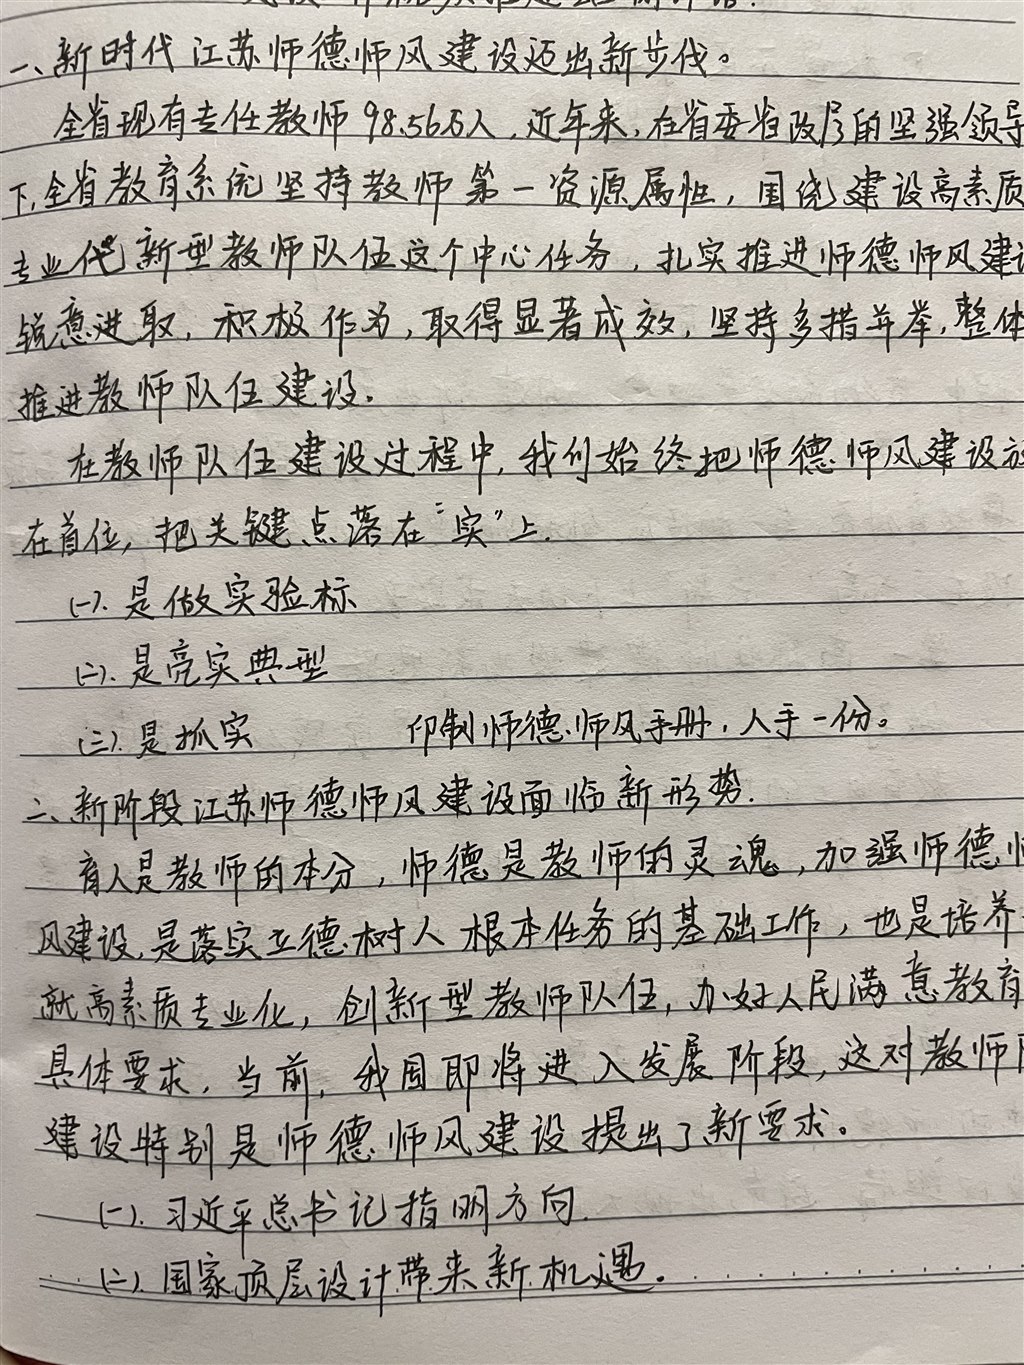 一、新时代江苏师德师风建设迈出新步伐。
全省现有专任教师98.56万人,近年来,在省委省政府的坚强领导
下,全省教育系统坚持教师第一资源属性,围绕建设高素质
专业化新型教师队伍这个中心任务,扎实推进师德师风建设
锐意进取,积极作为,取得显著成效,坚持多措并举,整体
推进教师队伍建设.
在教师队伍建设过程中,我们始终把师德师风建设放
在首位,把关键点落在“实”上.
(一).是做实验标
(二).是亮实典型
(三).是抓实 印制师德师风手册,人手一份。
二、新阶段江苏师德师风建设面临新形势.
育人是教师的本分,师德是教师的灵魂,加强师德师
风建设,是落实立德树人根本任务的基础工作,也是培养
就高素质专业化,创新型教师队伍,办好人民满意教育
具体要求.当前,我国即将进入发展阶段,这对教师队
建设特别是师德师风建设提出了新要求。
(一).习近平总书记指明方向.
(二).国家顶层设计带来新机遇。